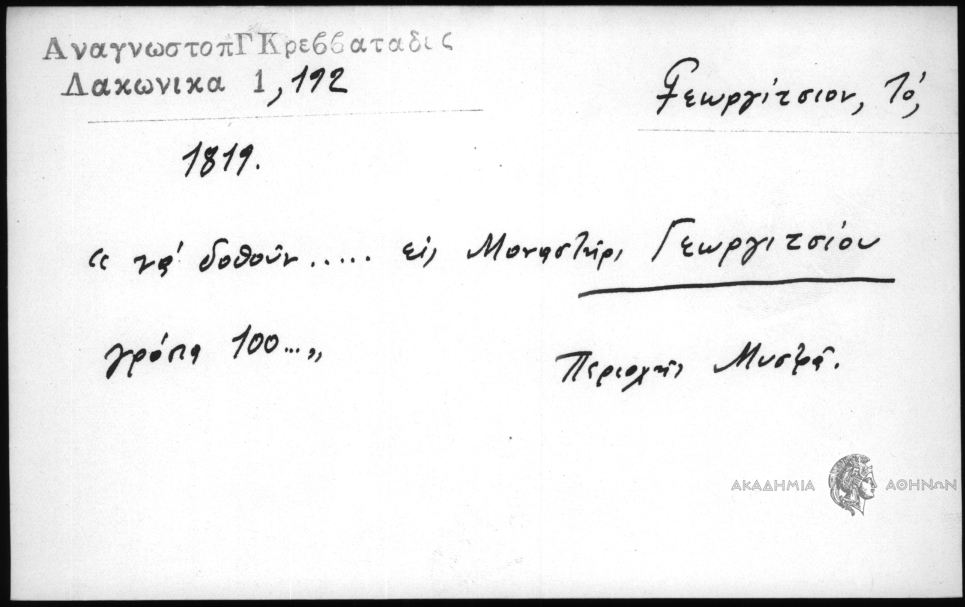 ΑναγνωστοπΓΚρεββαταδες
Λακωνικα 1,192
Γεωργίτσιον, Τό,
1819.
« νά δοθοῦν..... εἰς Μοναστήρι Γεωργιτσίου
γρόσια 100...„
Περιοχῆς Μυστρᾶ.
ΑΚΑΔΗΜΙΑ ΑΘΗΝΩΝ